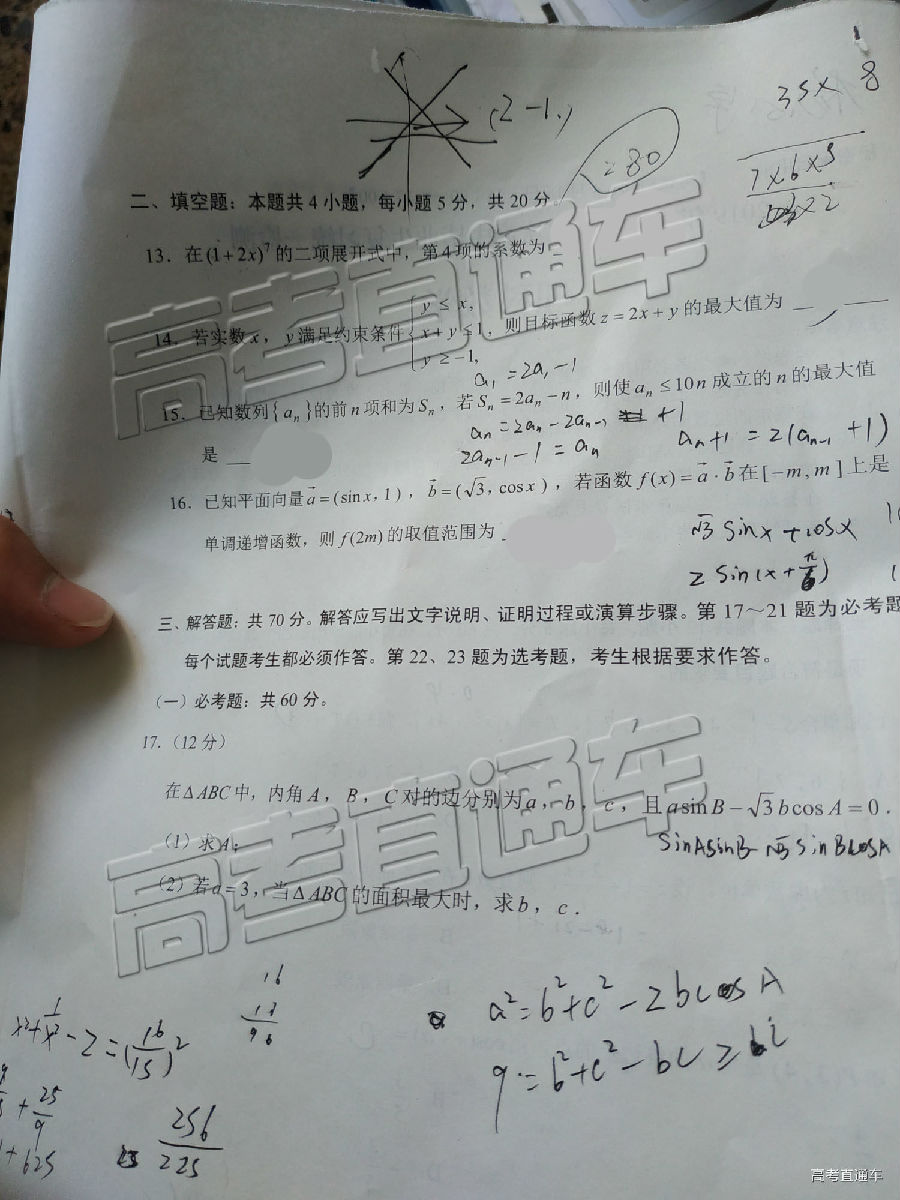 (2 -1,)
35×8
=80
7×6×5
二、填空题：本题共4小题，每小题5分，共20分。
13．在(1+2x)⁷的二项展开式中，第4项的系数为
14．若实数x，y满足约束条件{y≤x,
x+y≤1，则目标函数z=2x+y的最大值为
y≥-1,
a₁=2a₁-1
15．已知数列{aₙ}的前n项和为Sₙ，若Sₙ=2aₙ-n，则使aₙ≤10n成立的n的最大值
aₙ=2aₙ-2aₙ₋₁ +1
是
2aₙ₋₁-1=aₙ
aₙ+1=2(aₙ₋₁+1)
16．已知平面向量a⃗=(sinx，1)，b⃗=(√3，cosx)，若函数f(x)=a⃗·b⃗在[-m，m]上是
单调递增函数，则f(2m)的取值范围为
√3 sinx+cosx
2 sin(x+π/6)
三、解答题：共70分。解答应写出文字说明、证明过程或演算步骤。第17～21题为必考题
每个试题考生都必须作答。第22、23题为选考题，考生根据要求作答。
（一）必考题：共60分。
17.（12分）
在△ABC中，内角A，B，C对的边分别为a，b，c，且asinB-√3bcosA=0．
（1）求A；
sinAsinB-√3sinBcosA
（2）若a=3，当△ABC的面积最大时，求b，c．
高考直通车
高考直通车
x²+1/x²-2=(16/15)²
16
96
a²=b²+c²-2bccosA
9=b²+c²-bc≥bc
+25/9
+625
256/225
高考直通车